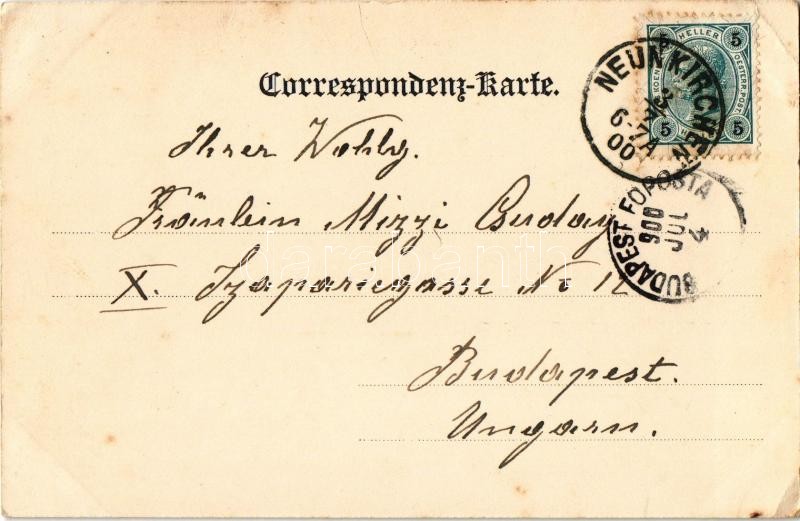 Correspondenz-Karte.
5 HELLER 5
OESTERR. POST
5 5
NEUNKIRCHEN
3/7
6-7A
00
BUDAPEST FŐPOSTA
900
JUL
4
Ihrer Wohlg.
Fräulein Mizzi Buday
X. Szapariegasse No 12
Budapest.
Ungarn.
darabanth